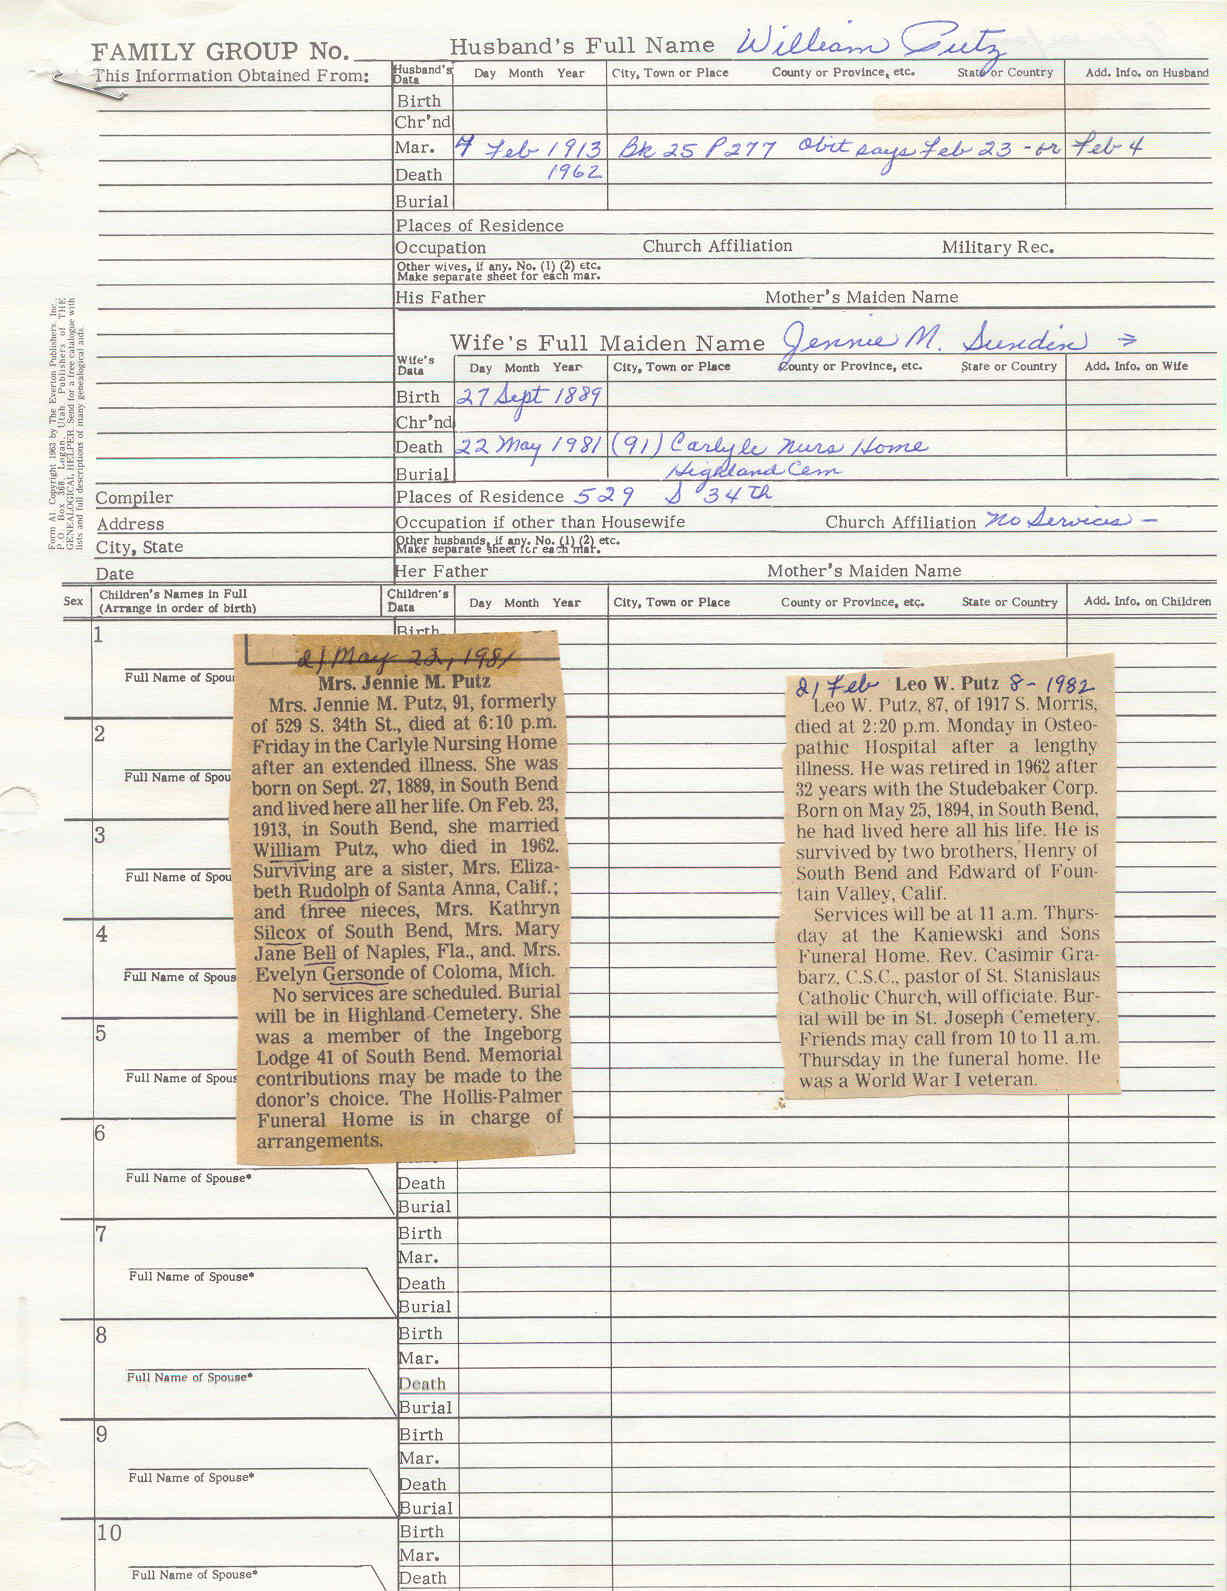 FAMILY GROUP No.
Husband's Full Name William Putz
This Information Obtained From:
Husband's Data Day Month Year City, Town or Place County or Province, etc. State or Country Add. Info. on Husband
Birth
Chr'nd
Mar. 4 Feb 1913 Bk 25 P 277 Obit says Feb 23 - or Feb 4
Death 1962
Burial
Places of Residence
Occupation Church Affiliation Military Rec.
Other wives, if any. No. (1) (2) etc.
Make separate sheet for each mar.
His Father Mother's Maiden Name
Form A1. Copyright 1963 by The Everton Publishers, Inc.,
P.O. Box 368, Logan, Utah Publishers of THE
GENEALOGICAL HELPER. Send for a free catalogue with
lists and full descriptions of many genealogical aids.
Wife's Full Maiden Name Jennie M. Sundin →
Wife's Data Day Month Year City, Town or Place County or Province, etc. State or Country Add. Info. on Wife
Birth 27 Sept 1889
Chr'nd
Death 22 May 1981 (91) Carlyle Nurs Home
Burial Highland Cem
Compiler
Places of Residence 529 S 34th
Address
Occupation if other than Housewife Church Affiliation No Services -
City, State
Other husbands, if any. No. (1) (2) etc.
Make separate sheet for each mar.
Date
Her Father Mother's Maiden Name
Sex Children's Names in Full
(Arrange in order of birth)
Children's Data Day Month Year City, Town or Place County or Province, etc. State or Country Add. Info. on Children
1 Birth
Full Name of Spou
2
Full Name of Spou
3
Full Name of Spou
4
Full Name of Spous
5
Full Name of Spous
May 23, 1981
Mrs. Jennie M. Putz
Mrs. Jennie M. Putz, 91, formerly
of 529 S. 34th St., died at 6:10 p.m.
Friday in the Carlyle Nursing Home
after an extended illness. She was
born on Sept. 27, 1889, in South Bend
and lived here all her life. On Feb. 23,
1913, in South Bend, she married
William Putz, who died in 1962.
Surviving are a sister, Mrs. Eliza-
beth Rudolph of Santa Anna, Calif.;
and three nieces, Mrs. Kathryn
Silcox of South Bend, Mrs. Mary
Jane Bell of Naples, Fla., and. Mrs.
Evelyn Gersonde of Coloma, Mich.
No services are scheduled. Burial
will be in Highland Cemetery. She
was a member of the Ingeborg
Lodge 41 of South Bend. Memorial
contributions may be made to the
donor's choice. The Hollis-Palmer
Funeral Home is in charge of
arrangements.
Feb Leo W. Putz 8 - 1982
Leo W. Putz, 87, of 1917 S. Morris,
died at 2:20 p.m. Monday in Osteo-
pathic Hospital after a lengthy
illness. He was retired in 1962 after
32 years with the Studebaker Corp.
Born on May 25, 1894, in South Bend,
he had lived here all his life. He is
survived by two brothers, Henry of
South Bend and Edward of Foun-
tain Valley, Calif.
Services will be at 11 a.m. Thurs-
day at the Kaniewski and Sons
Funeral Home. Rev. Casimir Gra-
barz, C.S.C., pastor of St. Stanislaus
Catholic Church, will officiate. Bur-
ial will be in St. Joseph Cemetery.
Friends may call from 10 to 11 a.m.
Thursday in the funeral home. He
was a World War I veteran.
6
Full Name of Spouse*
Death
Burial
7 Birth
Mar.
Full Name of Spouse*
Death
Burial
8 Birth
Mar.
Full Name of Spouse*
Death
Burial
9 Birth
Mar.
Full Name of Spouse*
Death
Burial
10 Birth
Mar.
Full Name of Spouse*
Death